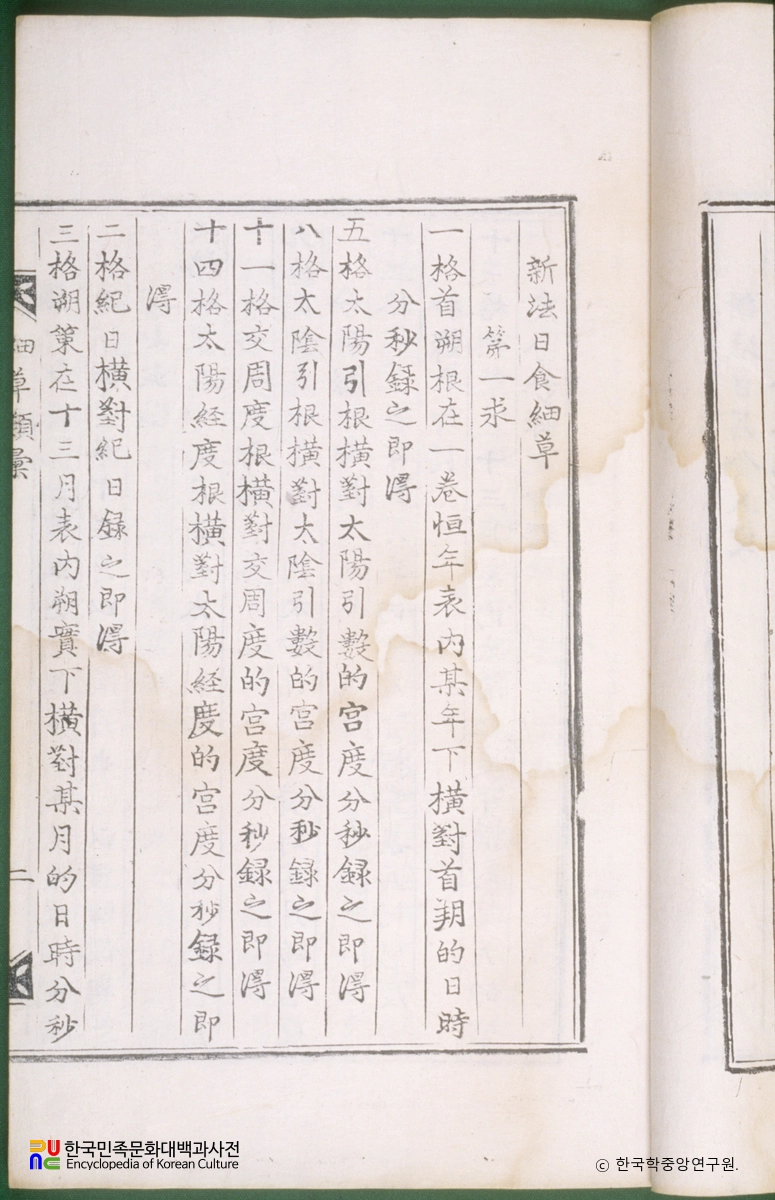 新法日食細草
第一求
一格首朔根在一卷恒年表内某年下橫對首朔的日時
分秒録之即淂
五格太陽引根橫對太陽引數的宫度分秒録之即淂
八格太陰引根橫對太陰引數的宫度分秒録之即淂
十一格交周度根橫對交周度的宫度分秒録之即淂
十四格太陽経度根橫對太陽経度的宫度分秒録之即
淂
二格紀日橫對紀日録之即淂
三格朔策在十三月表内朔實下橫對某月的日時分秒
細草類彙
二
한국민족문화대백과사전
Encyclopedia of Korean Culture
© 한국학중앙연구원.